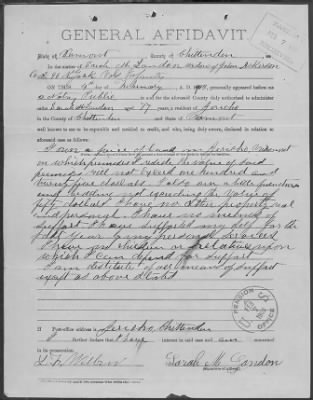 GENERAL AFFIDAVIT.
State of Vermont County of Chittenden
In the matter of Sarah M. Landon widow of John
Vols Infantry
ON THIS 4th day of February A. D. personally appeared before me
a Notary Public in and for the aforesaid County duly authorized to administer
oaths Sarah M Landon aged 77 years, a resident of Jericho
in the County of Chittenden and State of Vermont
well known to me to be reputable and entitled to credit, and who, being duly sworn, declared in relation to
aforesaid case as follows:
I own a piece of land in Jericho, Vermont
on which premises I reside. The value of said
premises will not exceed one hundred and
twenty five dollars. I also own a little furniture
and clothing not exceeding the value of
fifty dollars I have no other property real
and personal. I have no method of
support I have supported my self for the
past year by my personal services
I have no children or relatives upon
which I can depend for support
I am destitute of all means of support
except as above stated
Post-office address is Jericho, Chittenden
further declare that I have interest in said case and
in its prosecution.
Sarah M. Landon
PENSION